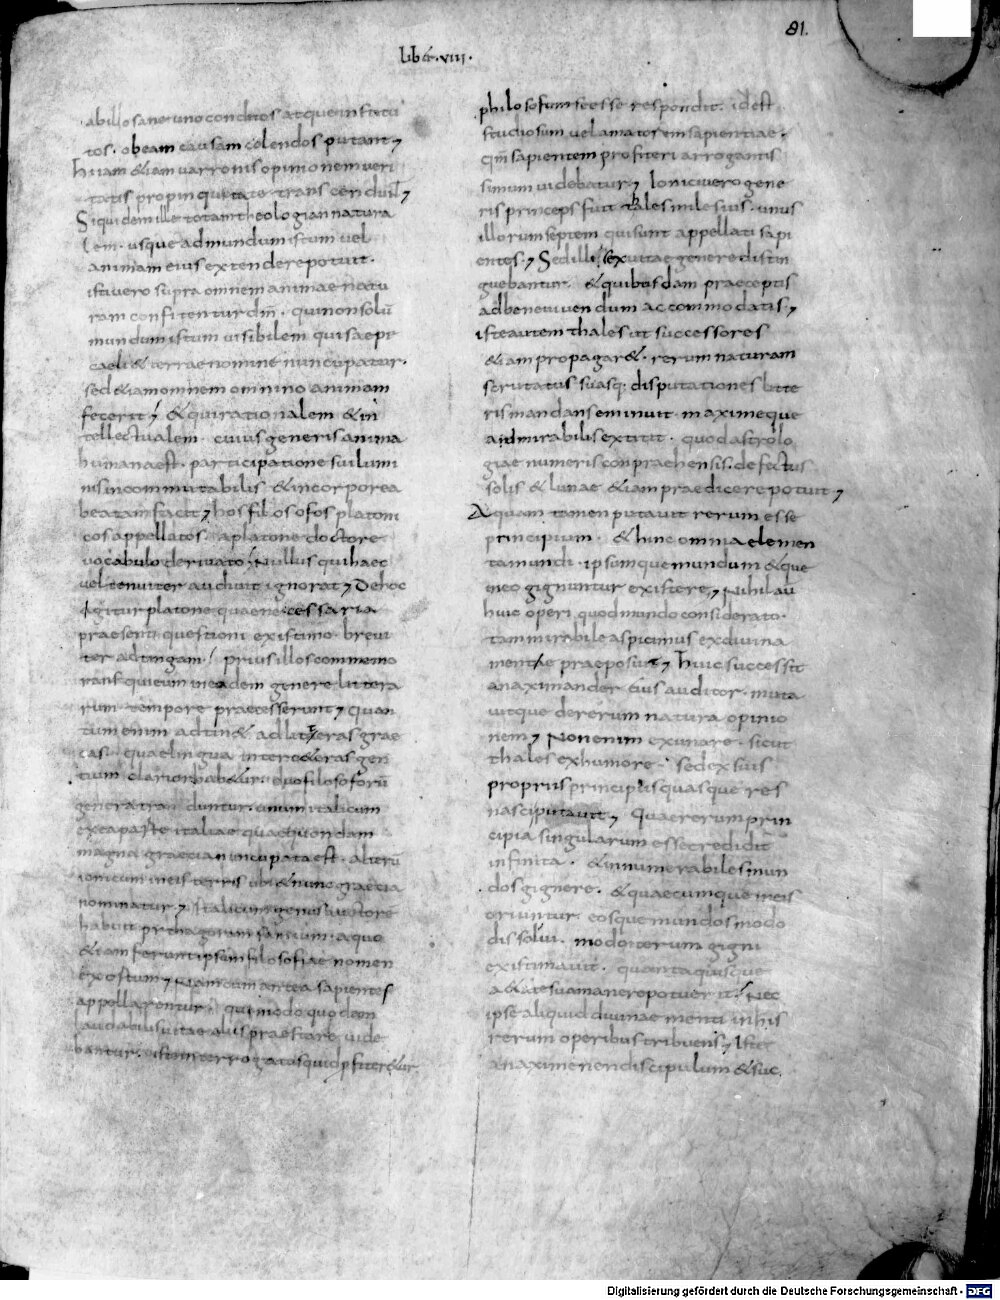 81.
lib̄ · viii ·
ab illo sane uno conditos atque institu
tos · ob eam causam colendos putant ⁊
Hi iam & iam varronis opinionem veri
tatis propinquitate transcendun̄t ⁊
Siquidem ille totam theologian natura
lem · usque ad mundum istum vel
animam eius extendere potuit ·
isti vero supra omnem animae natu
ram confitentur dm̄ · qui non solū
mundum istum visibilem qui saepe
caeli & terrae nomine nuncupatur ·
sed & iam omnem omnino animam
fecerit ⁊ & qui rationalem & in
tellectualem · cuius generis anima
humana est · participatione sui lumi
nis incommutabilis & incorporea
beatam facit ⁊ hos filosofos platoni
cos appellatos · a platone doctore
vocabulo derivato ⁊ Nullus qui haec
vel tenuiter audivit ignorat ⁊ De hoc
igitur platone quae necessaria
praesenti questioni existimo · brevi
ter adtingam ⁊ prius illos commemo
rans qui eum in eadem genere littera
rum tempore praecesserunt ⁊ Quan
tum enim adtin& ad litteras grae
cas · quae lingua inter c&eras gen
tium clarior hab&ur · duo filosoforū
genera traduntur · unum italicum
ex ea parte italiae quae quondam
magna graecia nuncupata est · alterū
ionicum in eis terris ubi & nunc graecia
nominatur ⁊ Italicum genus auctorē
habuit pythagoram samium · a quo
& iam ferunt ipsum filosofiae nomen
exortum ⁊ Nam cum antea sapientes
appellarentur · qui modo quodam
laudabilis vitae aliis praestare vide
bantur · iste interrogatus quid pfiter&ur
philosofum se esse respondit · id est
studiosum vel amatorem sapientiae ·
qm̄ sapientem profiteri arrogantis
simum videbatur ⁊ Ionici vero gene
ris princeps fuit thales milesius · unus
illorum septem qui sunt appellati sapi
entes ⁊ Sed illi sex vitae genere distin
guebantur · & quibusdam praeceptis
ad bene vivendum accommodatis ⁊
iste autem thales ut successores
& iam propagar& · rerum naturam
scrutatus suasq; disputationes litte
ris mandans eminuit · maximeque
admirabilis extitit · quod astrolo
giae numeris conpraehensis · defectus
solis & lunae & iam praedicere potuit ⁊
Aquam tamen putavit rerum esse
principium · & hinc omnia elemen
ta mundi · ipsumque mundum & que
in eo gignuntur existere ⁊ Nihil aū
huic operi quod mundo considerato ·
tam mirabile aspicimus ex divina
mente praeposuit ⁊ Huic successit
anaximander eius auditor · muta
vitque de rerum natura opinio
nem ⁊ Non enim ex una re · sicut
thales ex humore · sed ex suis
propriis principiis quasque res
nasci putavit ⁊ Quae rerum prin
cipia singularum esse credidit
infinita · & innumerabiles mun
dos gignere · & quaecumque in eis
oriuntur eosque mundos modo
dissolui · modo iterum gigni
existimavit · quanta quisque
a&ate sua manere potuerit ⁊ Nec
ipse aliquid divinae menti in his
rerum operibus tribuens ⁊ Iste
anaximenen discipulum & suc
Digitalisierung gefördert durch die Deutsche Forschungsgemeinschaft - DFG